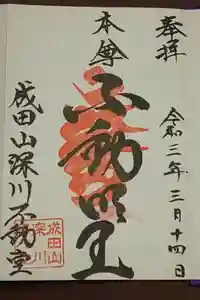 奉拝
令和三年三月十四日
本尊
不動明王
成田山深川不動堂
成田山
深川